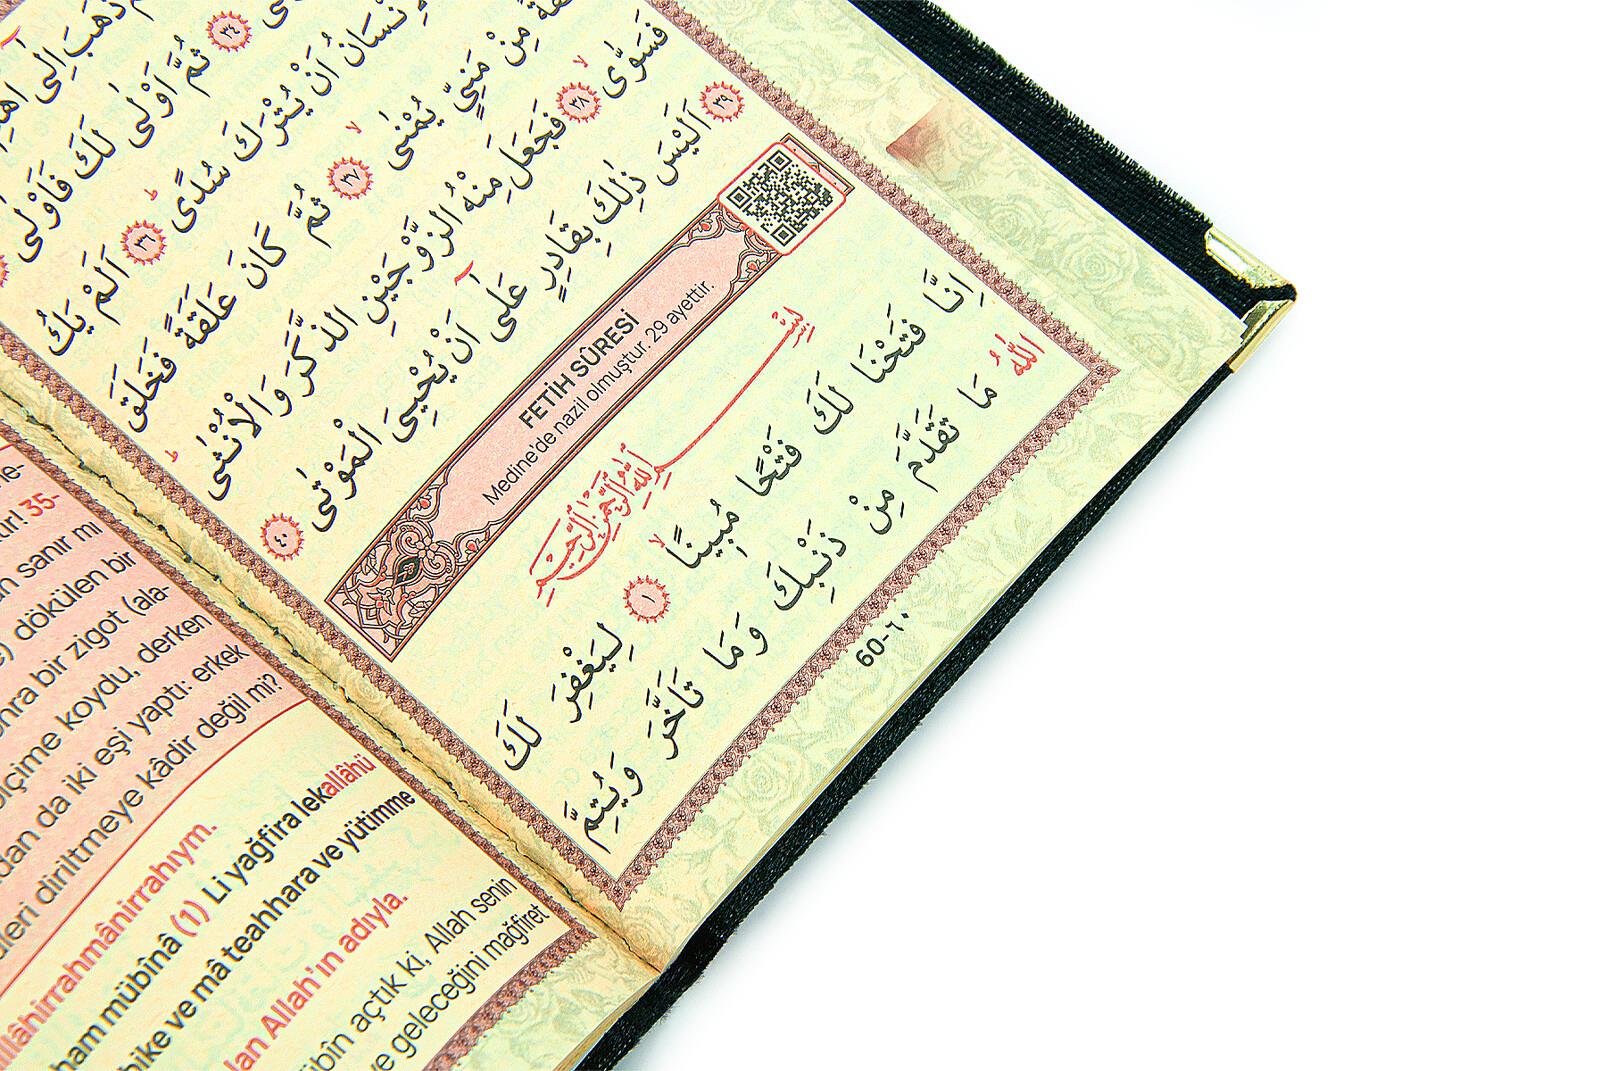 ذَهَبَ اِلٰٓى
﴿٣٤﴾ ثُمَّ اَوْلٰى لَكَ فَاَوْلٰى
اَنْ يُتْرَكَ سُدًىۜ ﴿٣٦﴾ اَلَمْ يَكُ
مِنْ مَنِيٍّ يُمْنٰىۙ ﴿٣٧﴾ ثُمَّ كَانَ عَلَقَةً فَخَلَقَ
فَسَوّٰىۙ ﴿٣٨﴾ فَجَعَلَ مِنْهُ الزَّوْجَيْنِ الذَّكَرَ وَالْاُنْثٰىۜ
﴿٣٩﴾ اَلَيْسَ ذٰلِكَ بِقَادِرٍ عَلٰٓى اَنْ يُحْيِيَ الْمَوْتٰى ﴿٤٠﴾
FETİH SÛRESİ
Medine'de nazil olmuştur. 29 ayettir.
بِسْمِ اللّٰهِ الرَّحْمٰنِ الرَّحِيمِ
اِنَّا فَتَحْنَا لَكَ فَتْحًا مُبِينًاۙ ﴿١﴾ لِيَغْفِرَ لَكَ
اللّٰهُ مَا تَقَدَّمَ مِنْ ذَنْبِكَ وَمَا تَاَخَّرَ وَيُتِمَّ
60-٦٠
35-
sanır mı
dökülen bir
bir zigot (ala-
biçime koydu, derken
dan da iki eşi yaptı: erkek
diriltmeye kâdir değil mi?
mübînâ (1) Li yağfira lekallâhü
ve mâ teahhara ve yütimme
Allah'ın adıyla.
açtık ki, Allah senin
ve geleceğini mağfiret